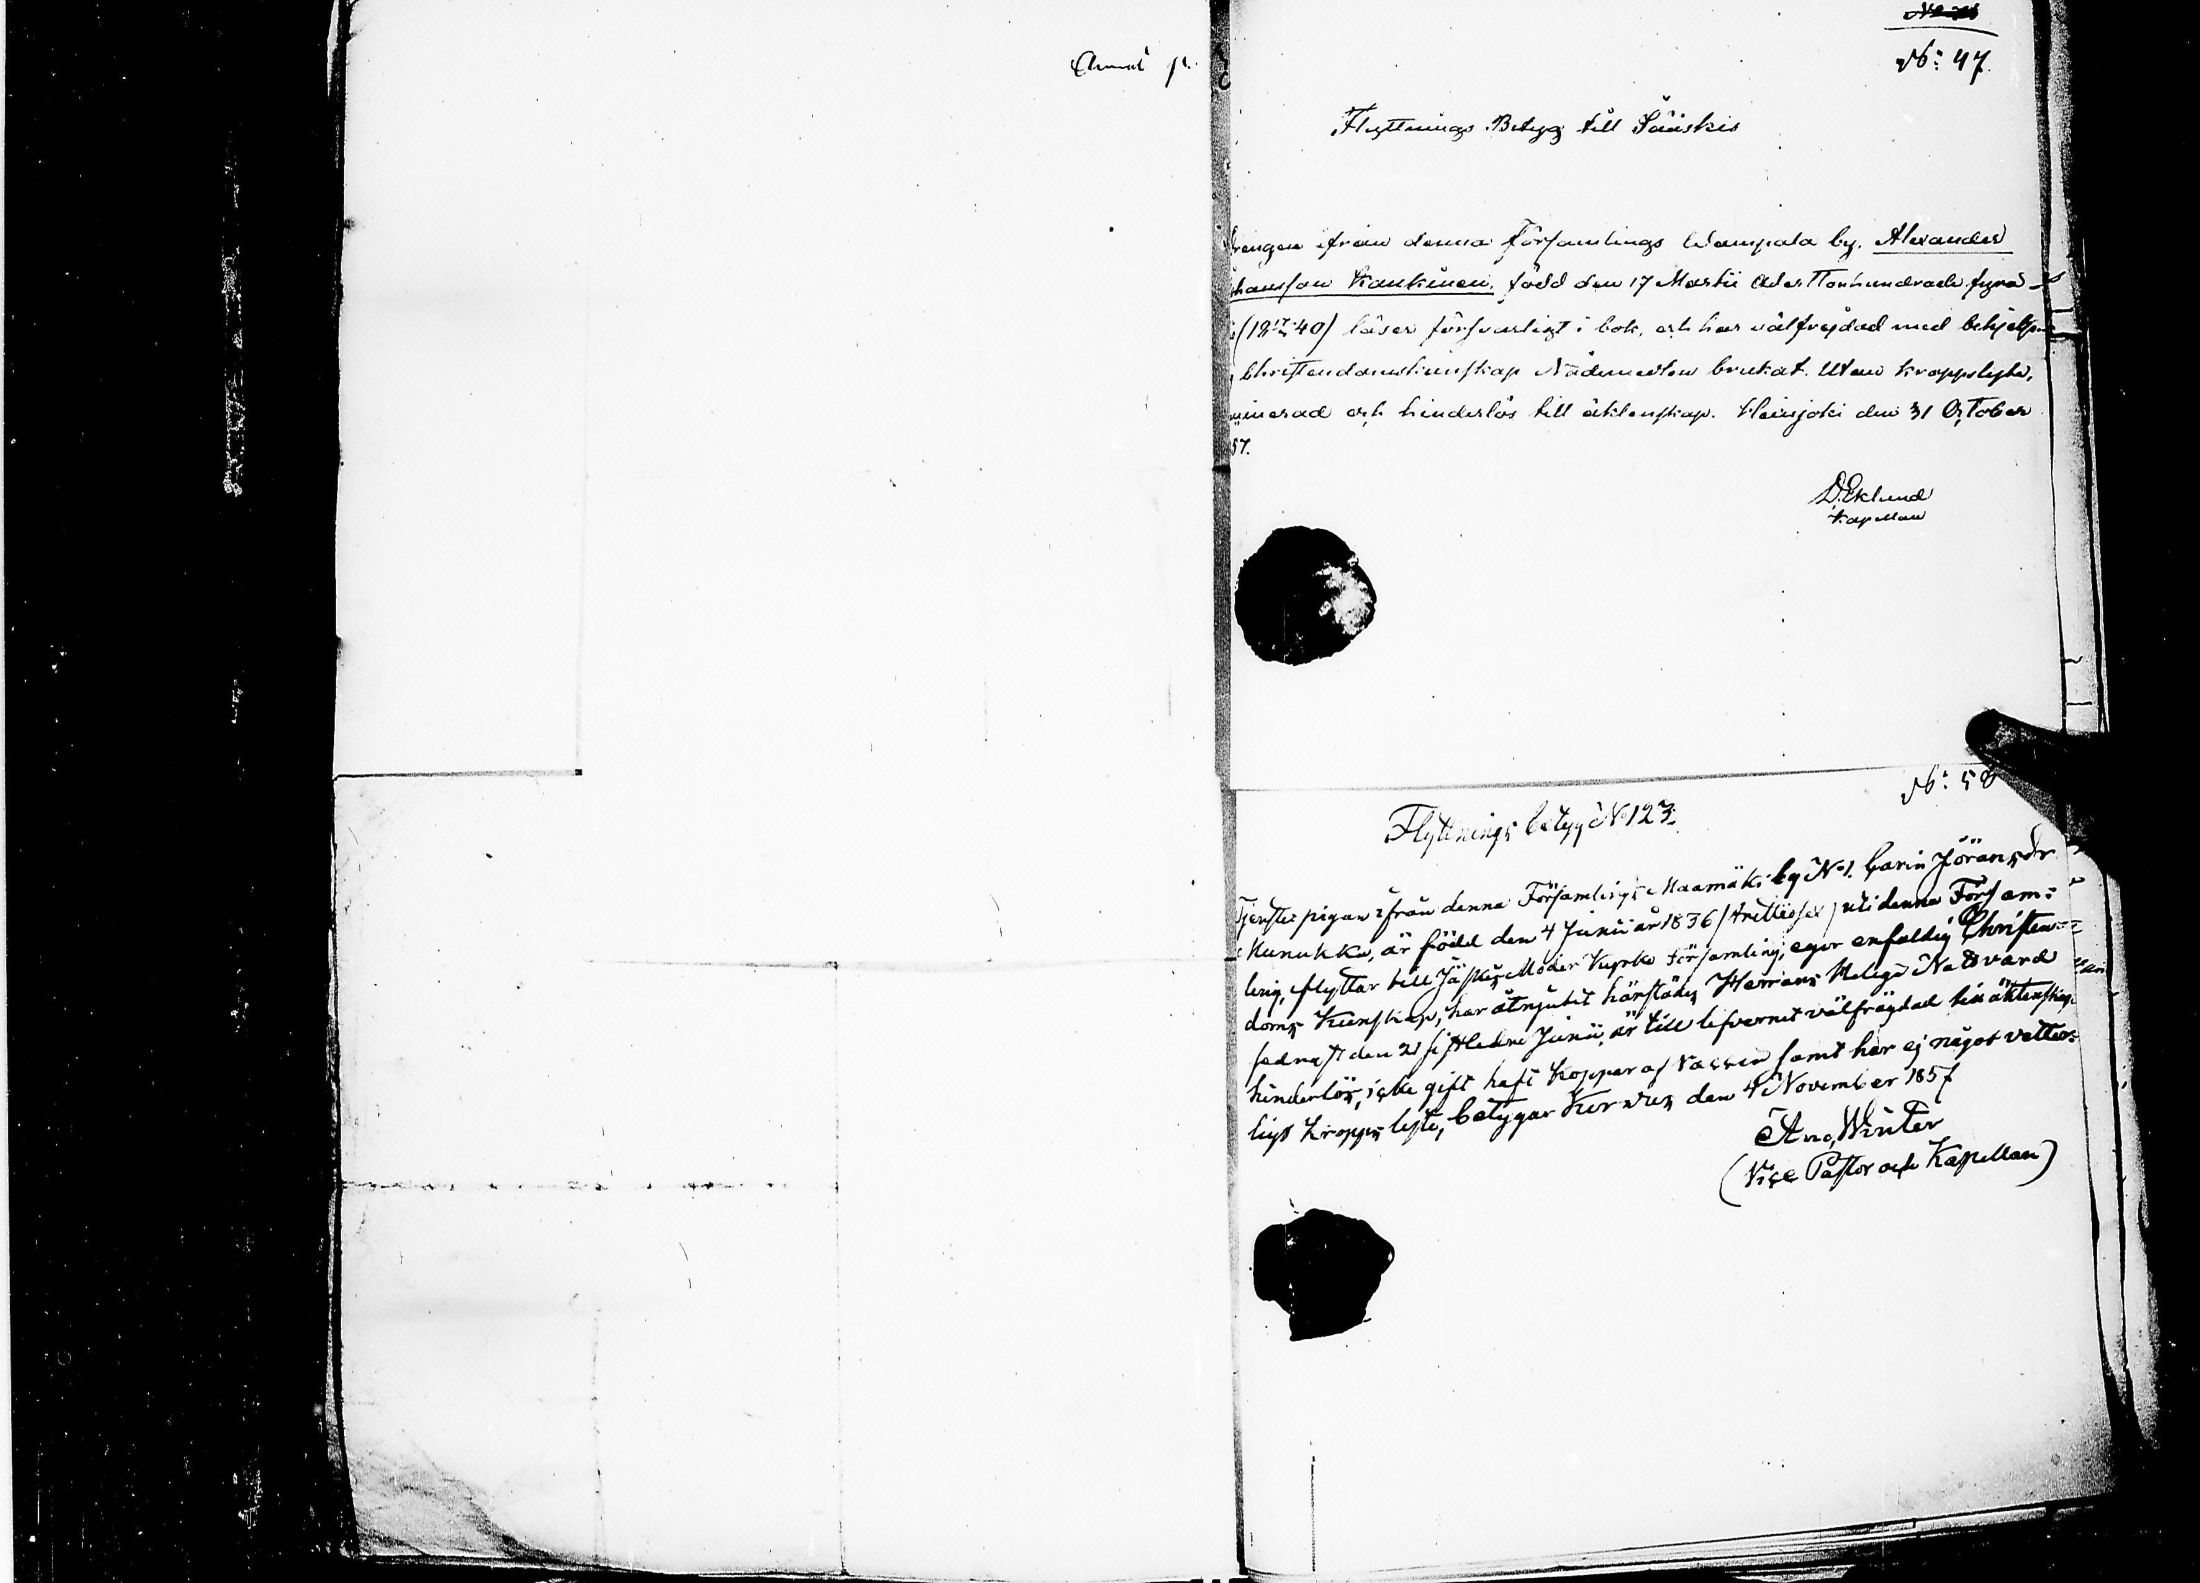 No: 47.
Flyttnings Betyg till Jääskis
Drengen ifrån denna Församlings Wampala by. Alexander
Johansson Kaukinen, född den 17 Martii Adertonhundrade fyra-
(18 17/3 40) läser försvarligt i bok, och har välfrejdad med behjelp-
Christendomskunskap Nådemedlen brukat. Utan kroppslyte,
och hinderlös till äktenskap. Heinjoki den 31 October
57.
D. Eklund
Kapellan
No: 58
Flyttnings betyg No 123.
Tjenste pigan ifrån denna Församlings Maamäki by No 1. Carin Jöransdr
Munukka, är född den 4 Junii år 1836 /trettiosex/ uti denna Försam-
ling, flyttar till Jäskis Moder Kyrko Församling, eger enfaldig Christen-
doms Kunskap, har åtnjutit härstädes Herrans Heliga Nattvard
sednast den 21 sistledne Junii, är till lefvernet välfrägdad till äktenskap
hinderlös, icke gift haft koppor af vaccin samt har ej något vetter-
ligt kropps lyte, betygar Kirvus den 4 November 1857
And. Winter
(Vice Pastor och Kapellan)